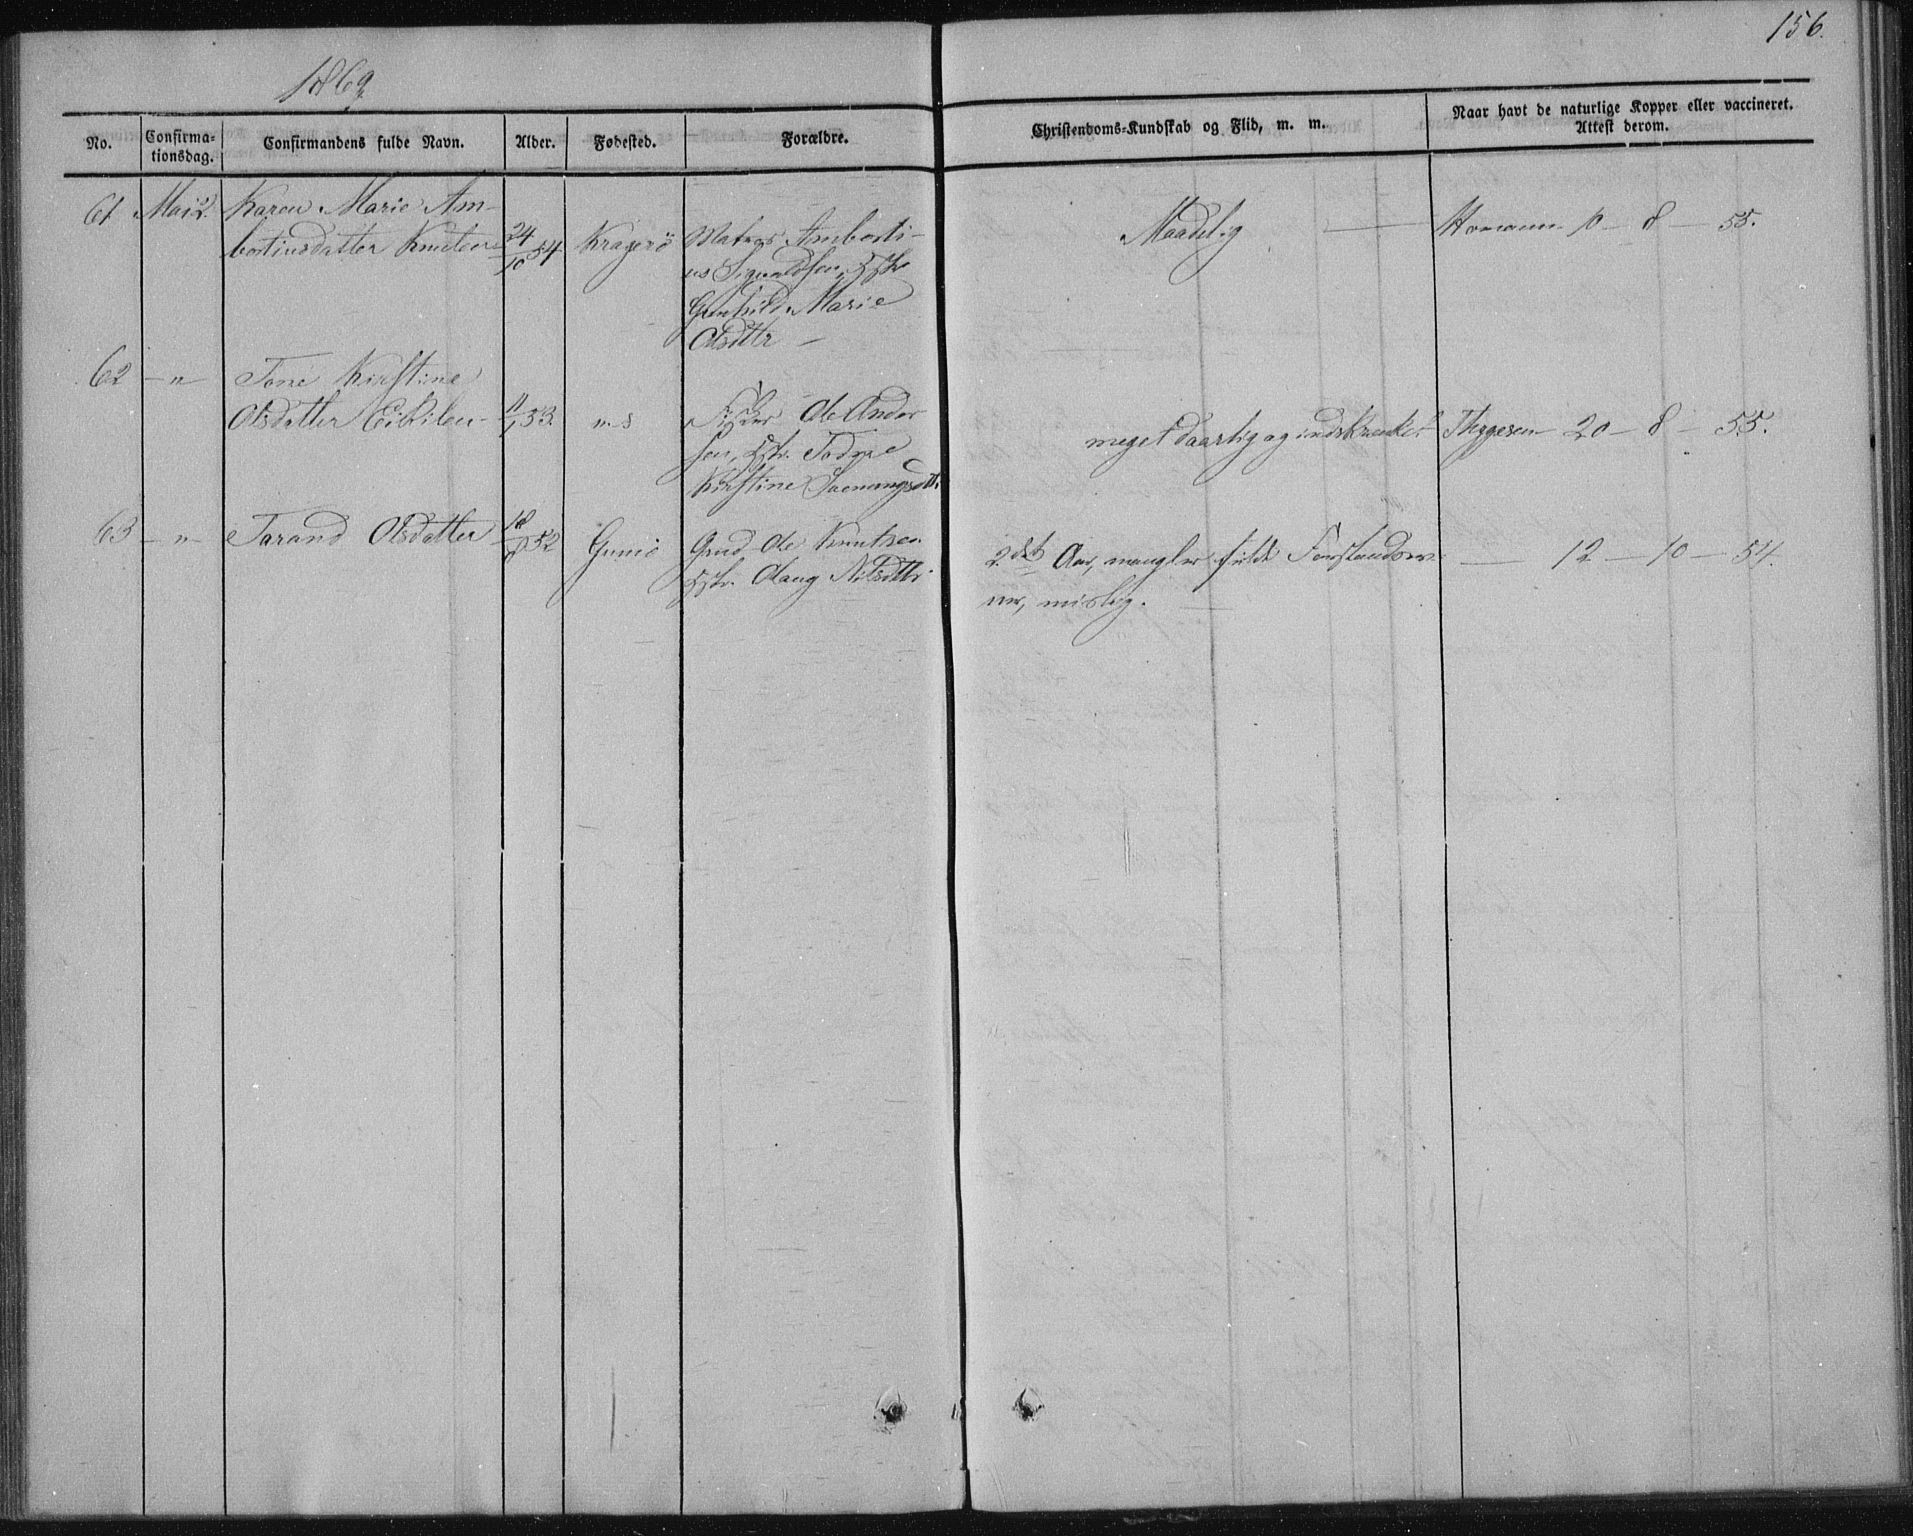 156.
1869
No.
Confirma-
tionsdag.
Confirmandens fulde Navn.
Alder.
Fødested.
Forældre.
Christendoms-Kundskab og Flid, m. m.
Naar havt de naturlige Kopper eller vaccineret.
Attest derom.
61 Mai 2. Karen Marie Am-
bortiusdatter 24/10 54 Kragerö Matros Amborti-
us Sigvaldsen, Hstr
Gunhild Marie
Olsdttr
Maadelig
Homann 10 - 8 - 55.
62 - " - Tone Kirstine
Olsdatter 11/1 53. Fisker Ole Ander
sen, Hstr.
Kirstine
meget daarlig og indskrænket
Thygesen 20 - 8 - 55.
63 - " - Tarand Olsdatter 52 Gumö Ole Knutsen
Hstr. Nilsdttr.
2det Aar, mangler fulde Forstandsev-
ner, mislig.
12 - 10 - 54.